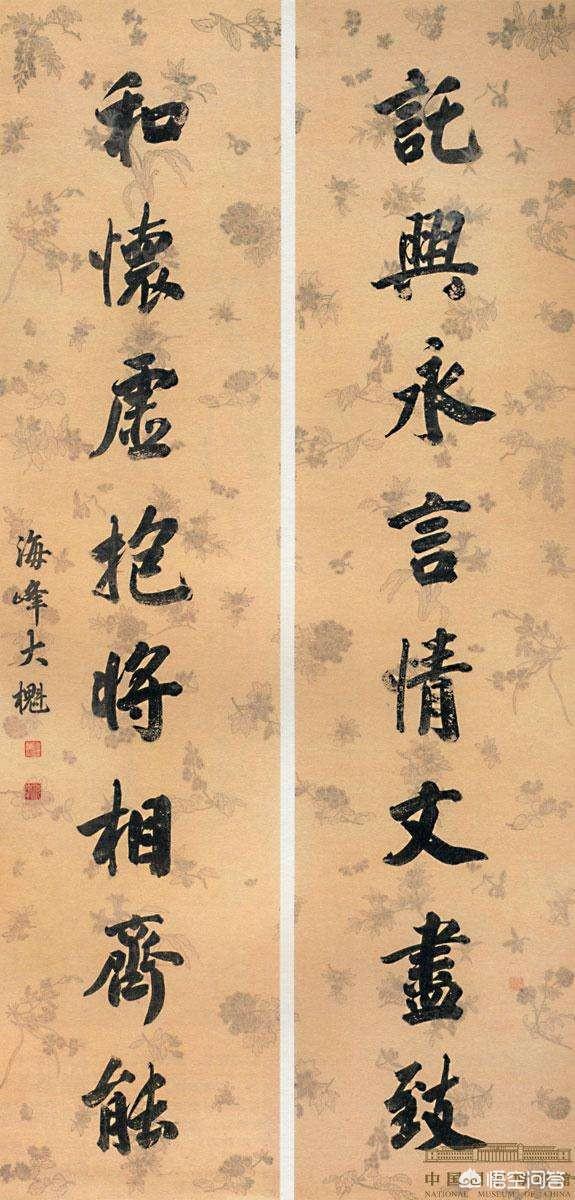 託興永言情文盡致
和懷虛抱將相齊能
海峰大櫆
NATIONAL MUSEUM OF CHINA
悟空问答